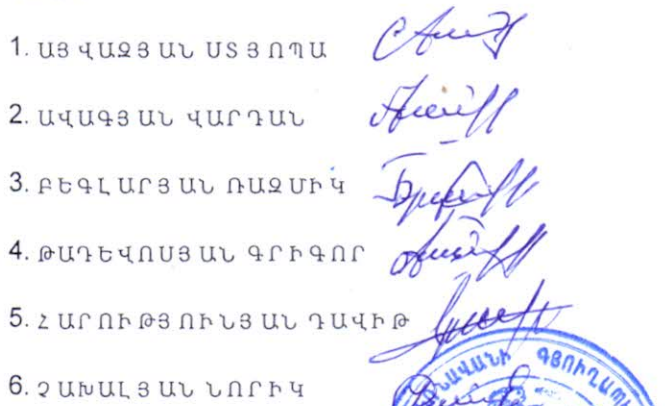 1. ԱՅՎԱԶՅԱՆ ՍՏՅՈՊԱ
2. ԱՎԱԳՅԱՆ ՎԱՐԴԱՆ
3. ԲԵԳԼԱՐՅԱՆ ՌԱԶՄԻԿ
4. ԹԱԴԵՎՈՍՅԱՆ ԳՐԻԳՈՐ
5. ՀԱՐՈՒԹՅՈՒՆՅԱՆ ԴԱՎԻԹ
6. ՉԱԽԱԼՅԱՆ ՆՈՐԻԿ